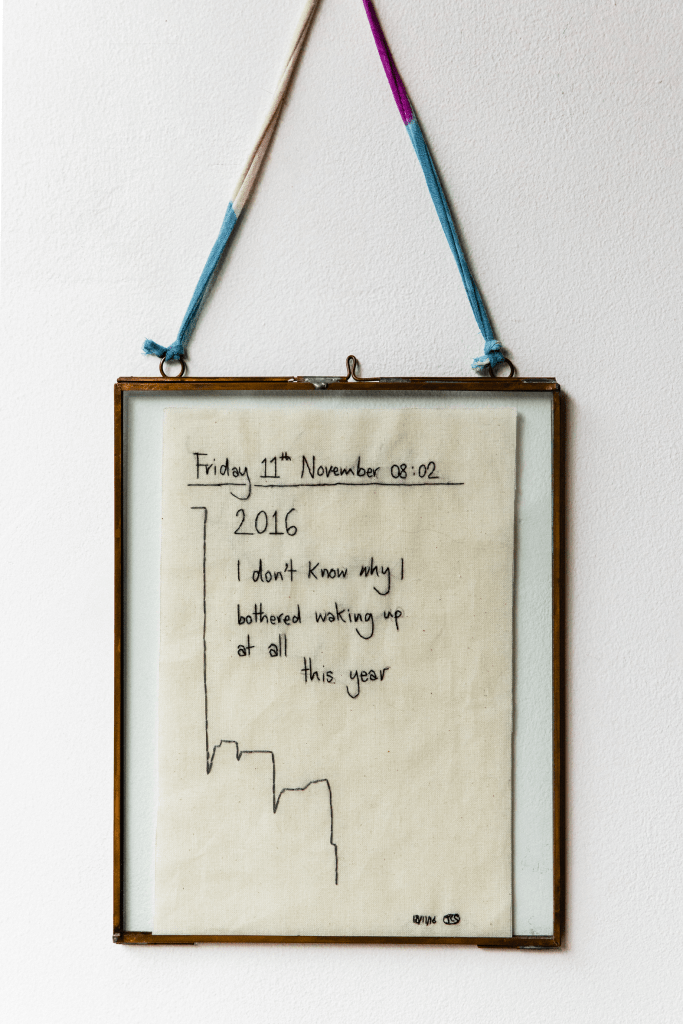 Friday 11th November 08:02
2016
I don't know why I
bothered waking up
at all
this year